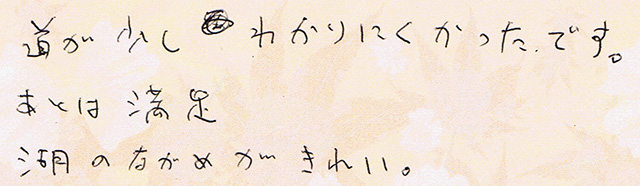 道が少しわかりにくかったです。
あとは満足
湖のながめがきれい。